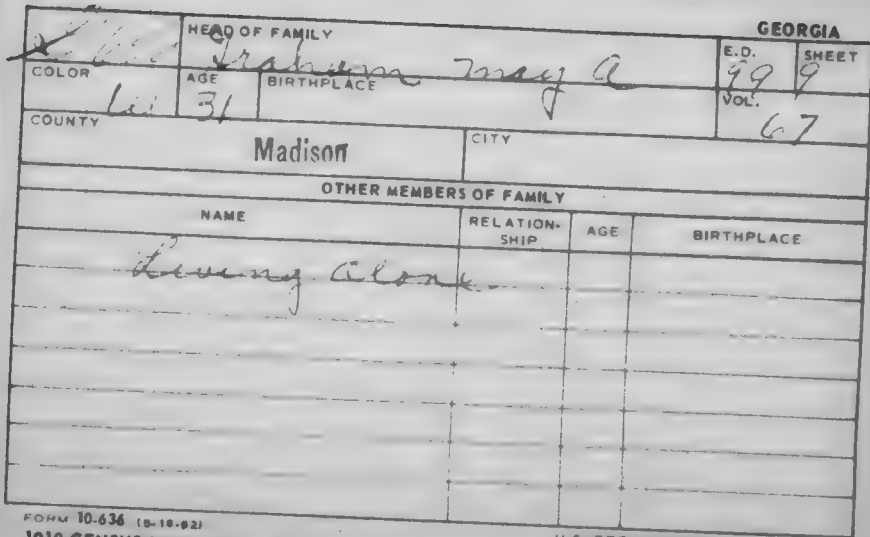 GEORGIA
HEAD OF FAMILY
Graham May A
E.D. 99
SHEET 9
COLOR W
AGE 31
BIRTHPLACE
VOL. 67
COUNTY Madison
CITY
OTHER MEMBERS OF FAMILY
NAME
RELATION-
SHIP
AGE
BIRTHPLACE
Living Alone
FORM 10-636 (8-18-62)